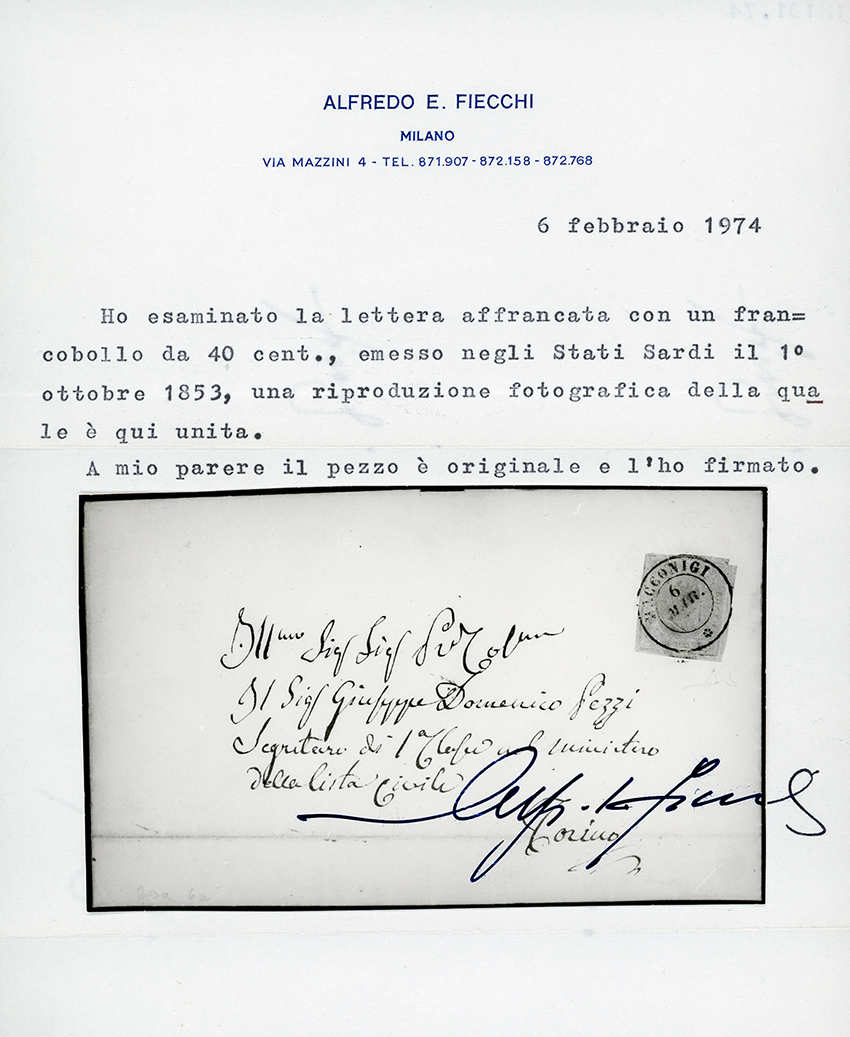 ALFREDO E. FIECCHI
MILANO
VIA MAZZINI 4 - TEL. 871.907 - 872.158 - 872.768
6 febbraio 1974
Ho esaminato la lettera affrancata con un fran=
cobollo da 40 cent., emesso negli Stati Sardi il 1º
ottobre 1853, una riproduzione fotografica della qua
le è qui unita.
A mio parere il pezzo è originale e l'ho firmato.
RACCONIGI
6
MAR.
Ill.mo Sig Sig
Il Sig Giuseppe Domenico Pezzi
Segritaro di 1a Classe nel ministero
della lista Civile
Torino